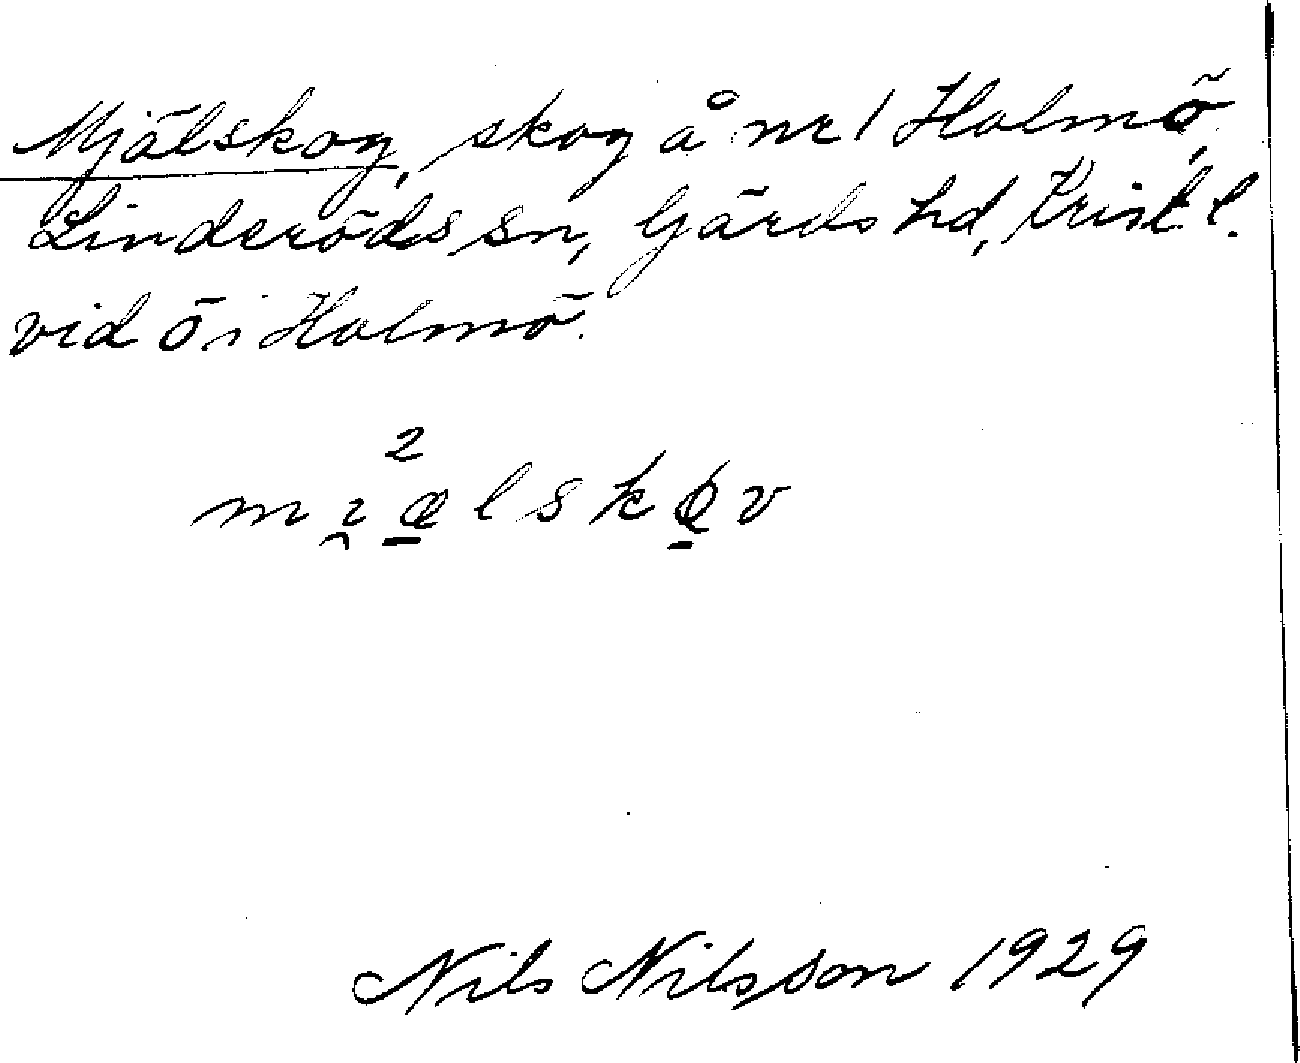 Mjälskog, skog å nr 1 Holmö,
Linderöds sn, Gärds hd, Krist. l.
vid Ö i Holmö.
2
mi̯æ̠lskø̠v
Nils Nilsson 1929